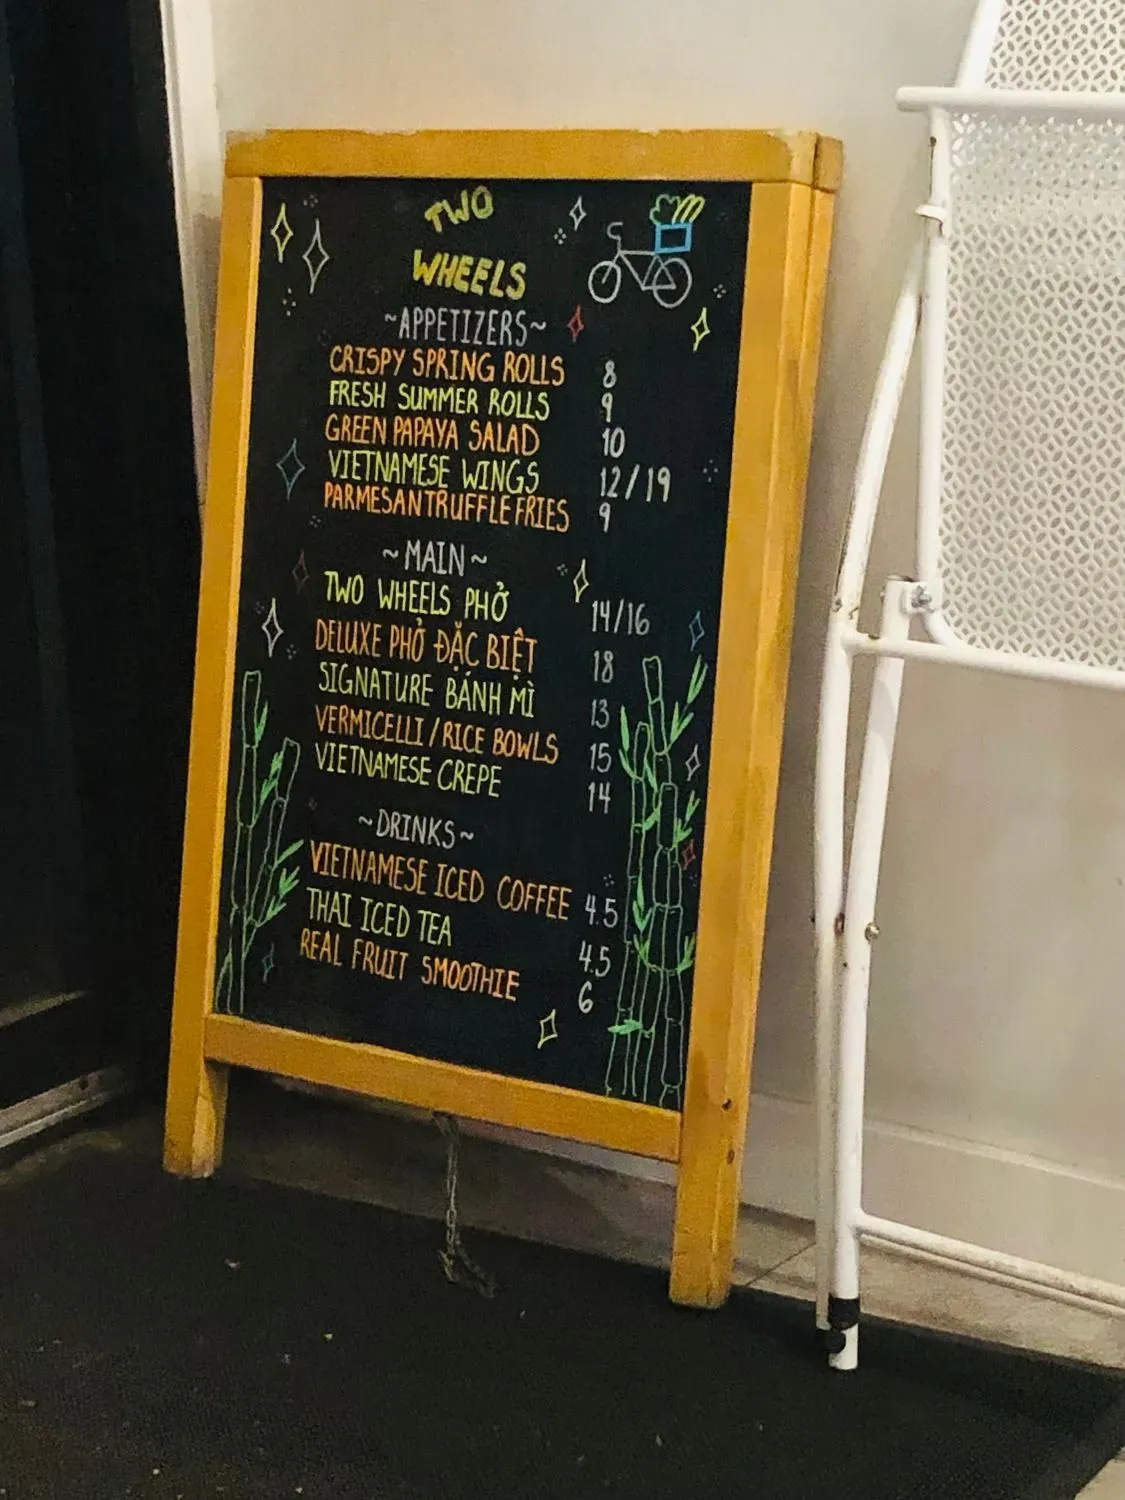 TWO
WHEELS
~APPETIZERS~
CRISPY SPRING ROLLS 8
FRESH SUMMER ROLLS 9
GREEN PAPAYA SALAD 10
VIETNAMESE WINGS 12/19
PARMESAN TRUFFLE FRIES 9
~MAIN~
TWO WHEELS PHỞ 14/16
DELUXE PHỞ ĐẶC BIỆT 18
SIGNATURE BÁNH MÌ 13
VERMICELLI/RICE BOWLS 15
VIETNAMESE CREPE 14
~DRINKS~
VIETNAMESE ICED COFFEE 4.5
THAI ICED TEA 4.5
REAL FRUIT SMOOTHIE 6